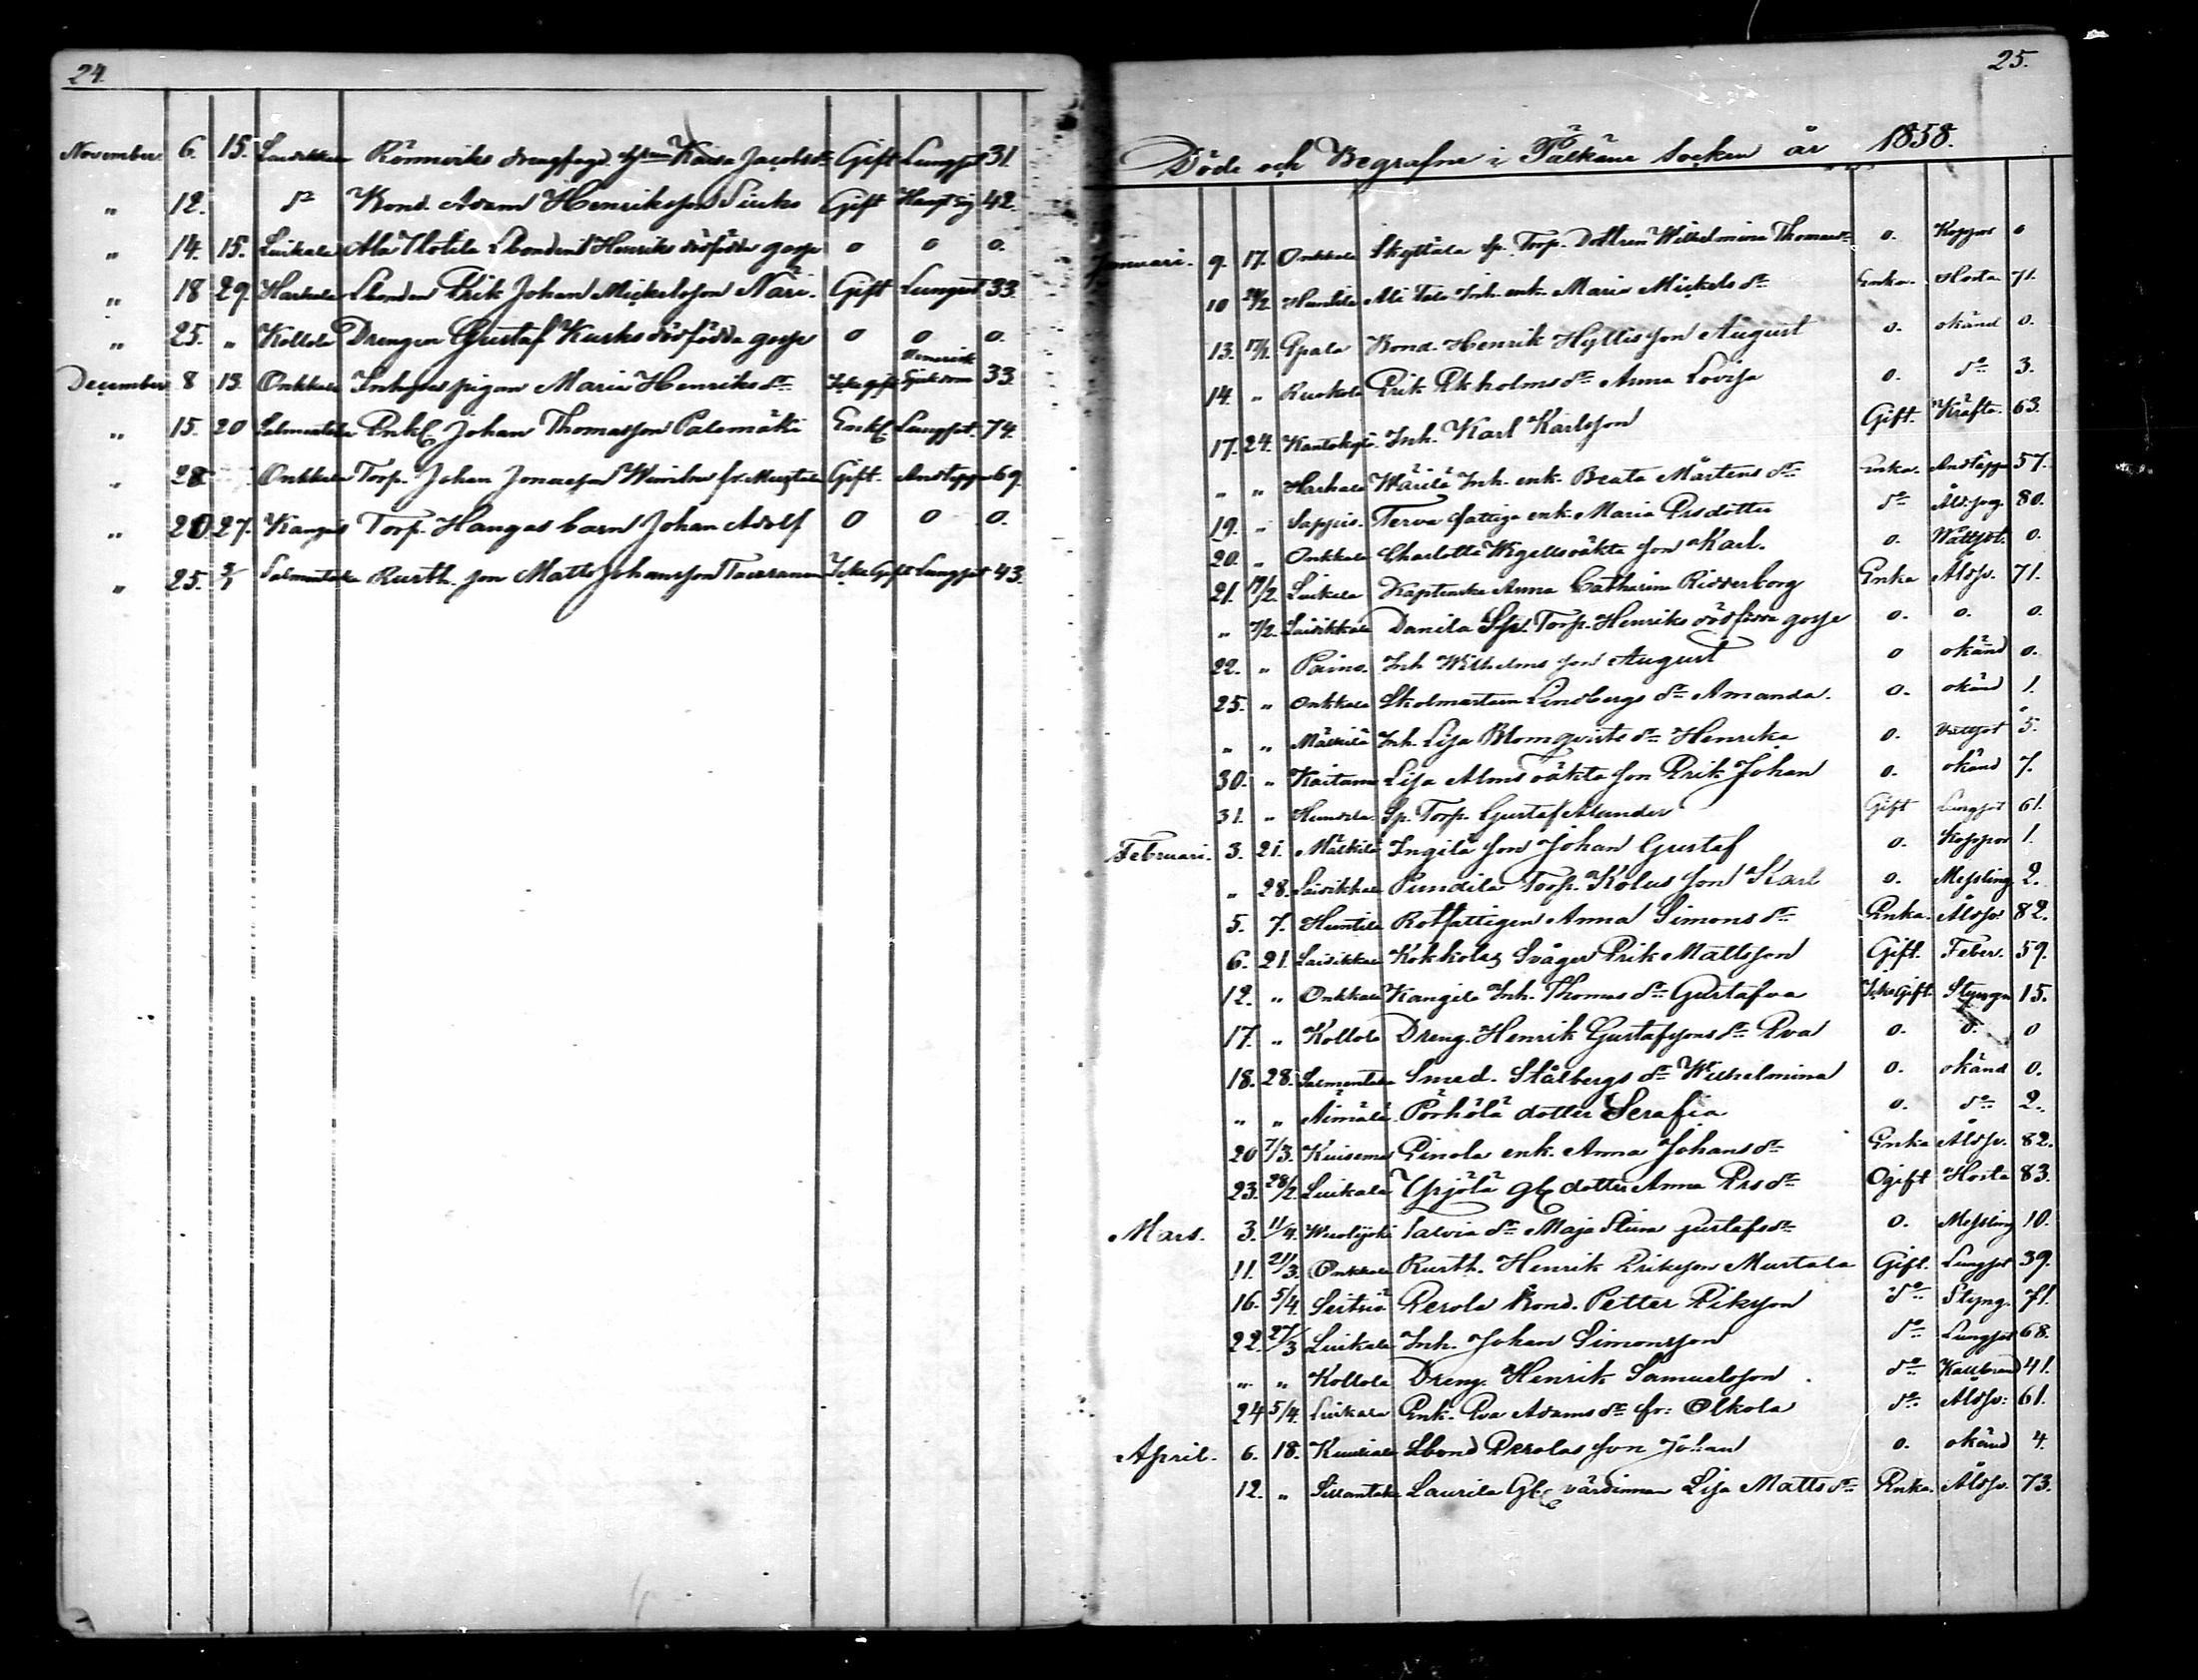 24.
November 6. 15. Laisikkala Rönnviks drengfogd. Kaisa Jacobsdr Gift Lungsot 31.
„ 12. do Bond. Adam Henriksson Gift 42.
„ 14. 15. Luikala Ala Clotila Lbonden Henriks dödfödde gosse o o o.
„ 18 29. Harhala Lbonden Erik Johan Mickelsson Näri. Gift Lungsot 33
„ 25. „ Kollola Drengen Gustaf Kurks dödfödda gosse o o o.
December 8 13. Onkkala Inhyses pigan Maria Henriksdr Icke gift Venerisk Sjukdom 33.
„ 15. 20 Salmentaka Enkl. Johan Thomasson Palomäki Enkl. Lungsot. 74.
„ 28 Onkkala Torp. Johan Jonasson fr. Gift. Andtäppa 69.
„ 20 27. Kangas Torp. Hangas barn Johan Adolf o o o.
„ 25. 3/1 Salmentaka Rusth. son Matts Johansson Icke Gift Lungsot 43.
25.
Döde och Begrafne i Pälkäne Socken år 1858.
Januari. 9. 17. Onkkala Skyttälä sp. Torp. Dottren Wilhelmina Thomasdr o. Koppor o
10 Huntila Ali Inh. enk. Maria Mickelsdr Enka. Hosta 71.
13. 17/1. Epala Bond. Henrik Hyllis son August o. okänd o.
14. „ Ruokola Erik Ekholms dr Anna Lovisa o. do 3.
17. 24. Kantokylä Inh. Karl Karlsson Gift. Kräfta. 63.
„ „ Harhala Wärilä Inh. enk. Beata Mårtensdr Enka. Andtäppa 57.
19. „ Sappis. Terva fattige enk. Maria Ersdotter do Åld.sv. 80.
20. „ Onkkala Charlotta Wigells oäkta son Karl. o. Wattsot. o.
21. 17/2. Luikala Kaptenska Anna Catharina Ridderborg Enka Åldsv. 71.
„ 7/2. Laisikkala Danila Sp. Torp. Henriks dödfödda gosse o. o. o.
22. „ Paino. Inh Wilhelms son August o okänd o.
25. „ Onkkala Skolmastaren Lindbergs dr Amanda. o. okänd 1.
„ „ Mälkilä Inh. Lisa Blomqvists dr Henrika o. Wattsot 5.
30. „ Kaitamo Lisa Alms oäkta son Erik Johan o. okänd 7.
31. „ Huntila Sp. Torp. Gustaf Alunder Gift Lungsot 61.
Februari. 3. 21. Mälkilä Ingilä son Johan Gustaf o. Koppor 1.
„ 28. Laisikkala Pundila Torp. Kolus son Karl o. Messling 2.
5. 7. Huntila Rotfattigen Anna Simonsdr Enka. Åldsv. 82.
6. 21. Laisikkala Kokkolas Svåger Erik Mattsson Gift. Feber. 59.
12. „ Onkkala Kangila Inh. Thomas dr Gustafva Icke Gift Styngn 15.
17. „ Kollola Dreng. Henrik Gustafssons dr Eva o. o. o
18. 28. Salmentaka Smed. Stålbergs dr Wilhelmina o. okänd o.
„ „ Äimälä Pörhölä dotter Serafia o. do 2.
20 7/3. Kuisema Einola enk. Anna Johansdr Enka Åldsv. 82.
23. 28/2. Luikala Yrjölä Gl. dotter Anna Ersdr Ogift Hosta 83.
Mars. 3. 11/4. Wuolijoki Salvia dr Maja Stina Gustafsdr o. Messling 10.
11. 21/3. Onkkala Rusth. Henrik Eriksson Murtala Gift. Lungsot 39.
16. 5/4. Seitsiä Perola Bond. Petter Eriksson do Styng. 71.
22. 27/3 Luikala Inh. Johan Simonsson do Lungsot 68.
„ „ Kollola Dreng. Henrik Samuelsson do Kallbrand 41.
24 5/4. Luikala Enk. Eva Adamsdr fr. Olkola do Åldsv. 61.
April. 6. 18. Kuuliala Lbond Perolas son Johan o. okänd 4.
12. „ Laurila Gl. värdinnan Lisa Mattsdr Enka. Åldsv. 73.